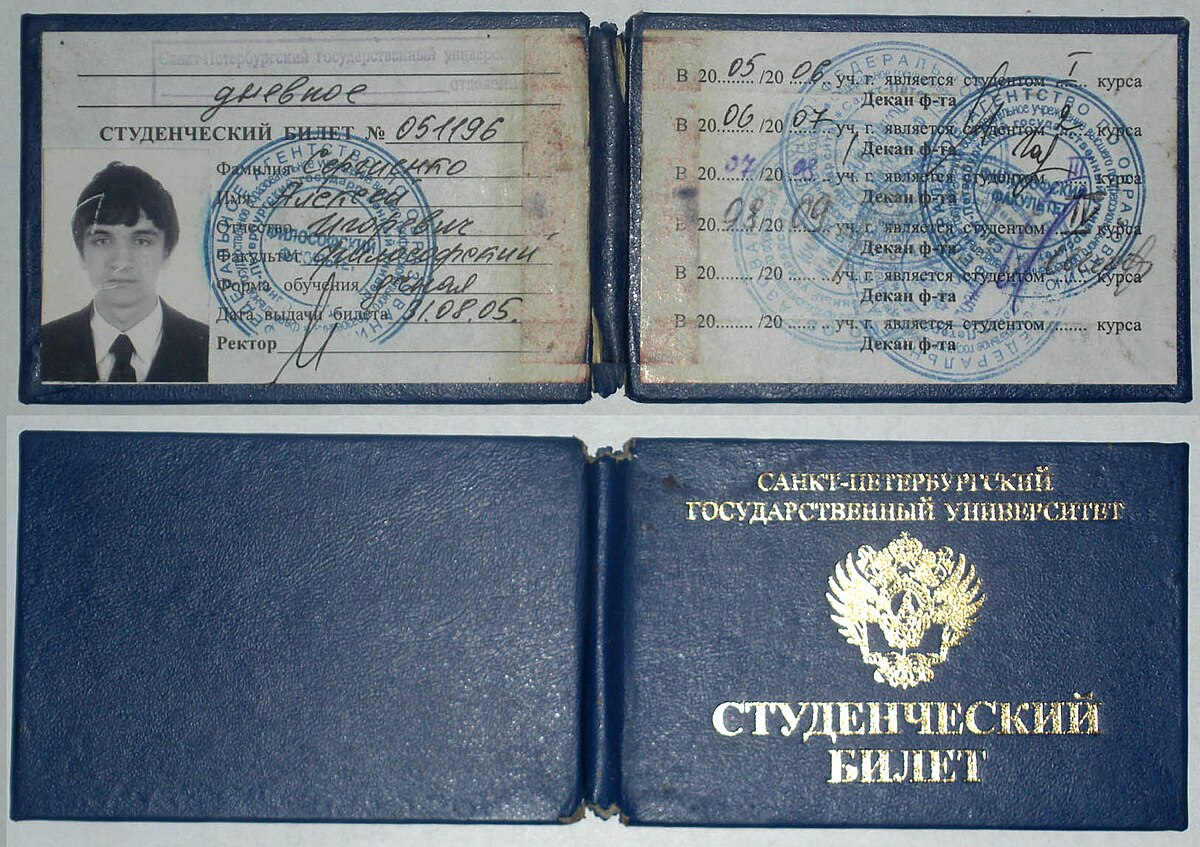 Санкт-Петербургский государственный универс
отделение
дневное
СТУДЕНЧЕСКИЙ БИЛЕТ № 051196
Фамилия Сергиенко
Имя Алексей
Отчество Игоревич
Факультет философский
Форма обучения очная
Дата выдачи билета 31.08.05.
Ректор
В 20 05 /20 06 уч. г. является студентом I курса
Декан ф-та
В 20 06 /20 07 уч. г. является студентом 2 курса
Декан ф-та
В 20 07 /20 08 уч. г. является студентом III курса
Декан ф-та
В 20 08 /20 09 уч. г. является студентом IV курса
Декан ф-та
В 20 ....... /20 ....... уч. г. является студентом ....... курса
Декан ф-та
В 20 ....... /20 ....... уч. г. является студентом ....... курса
Декан ф-та
САНКТ-ПЕТЕРБУРГСКИЙ
ГОСУДАРСТВЕННЫЙ УНИВЕРСИТЕТ
СТУДЕНЧЕСКИЙ
БИЛЕТ